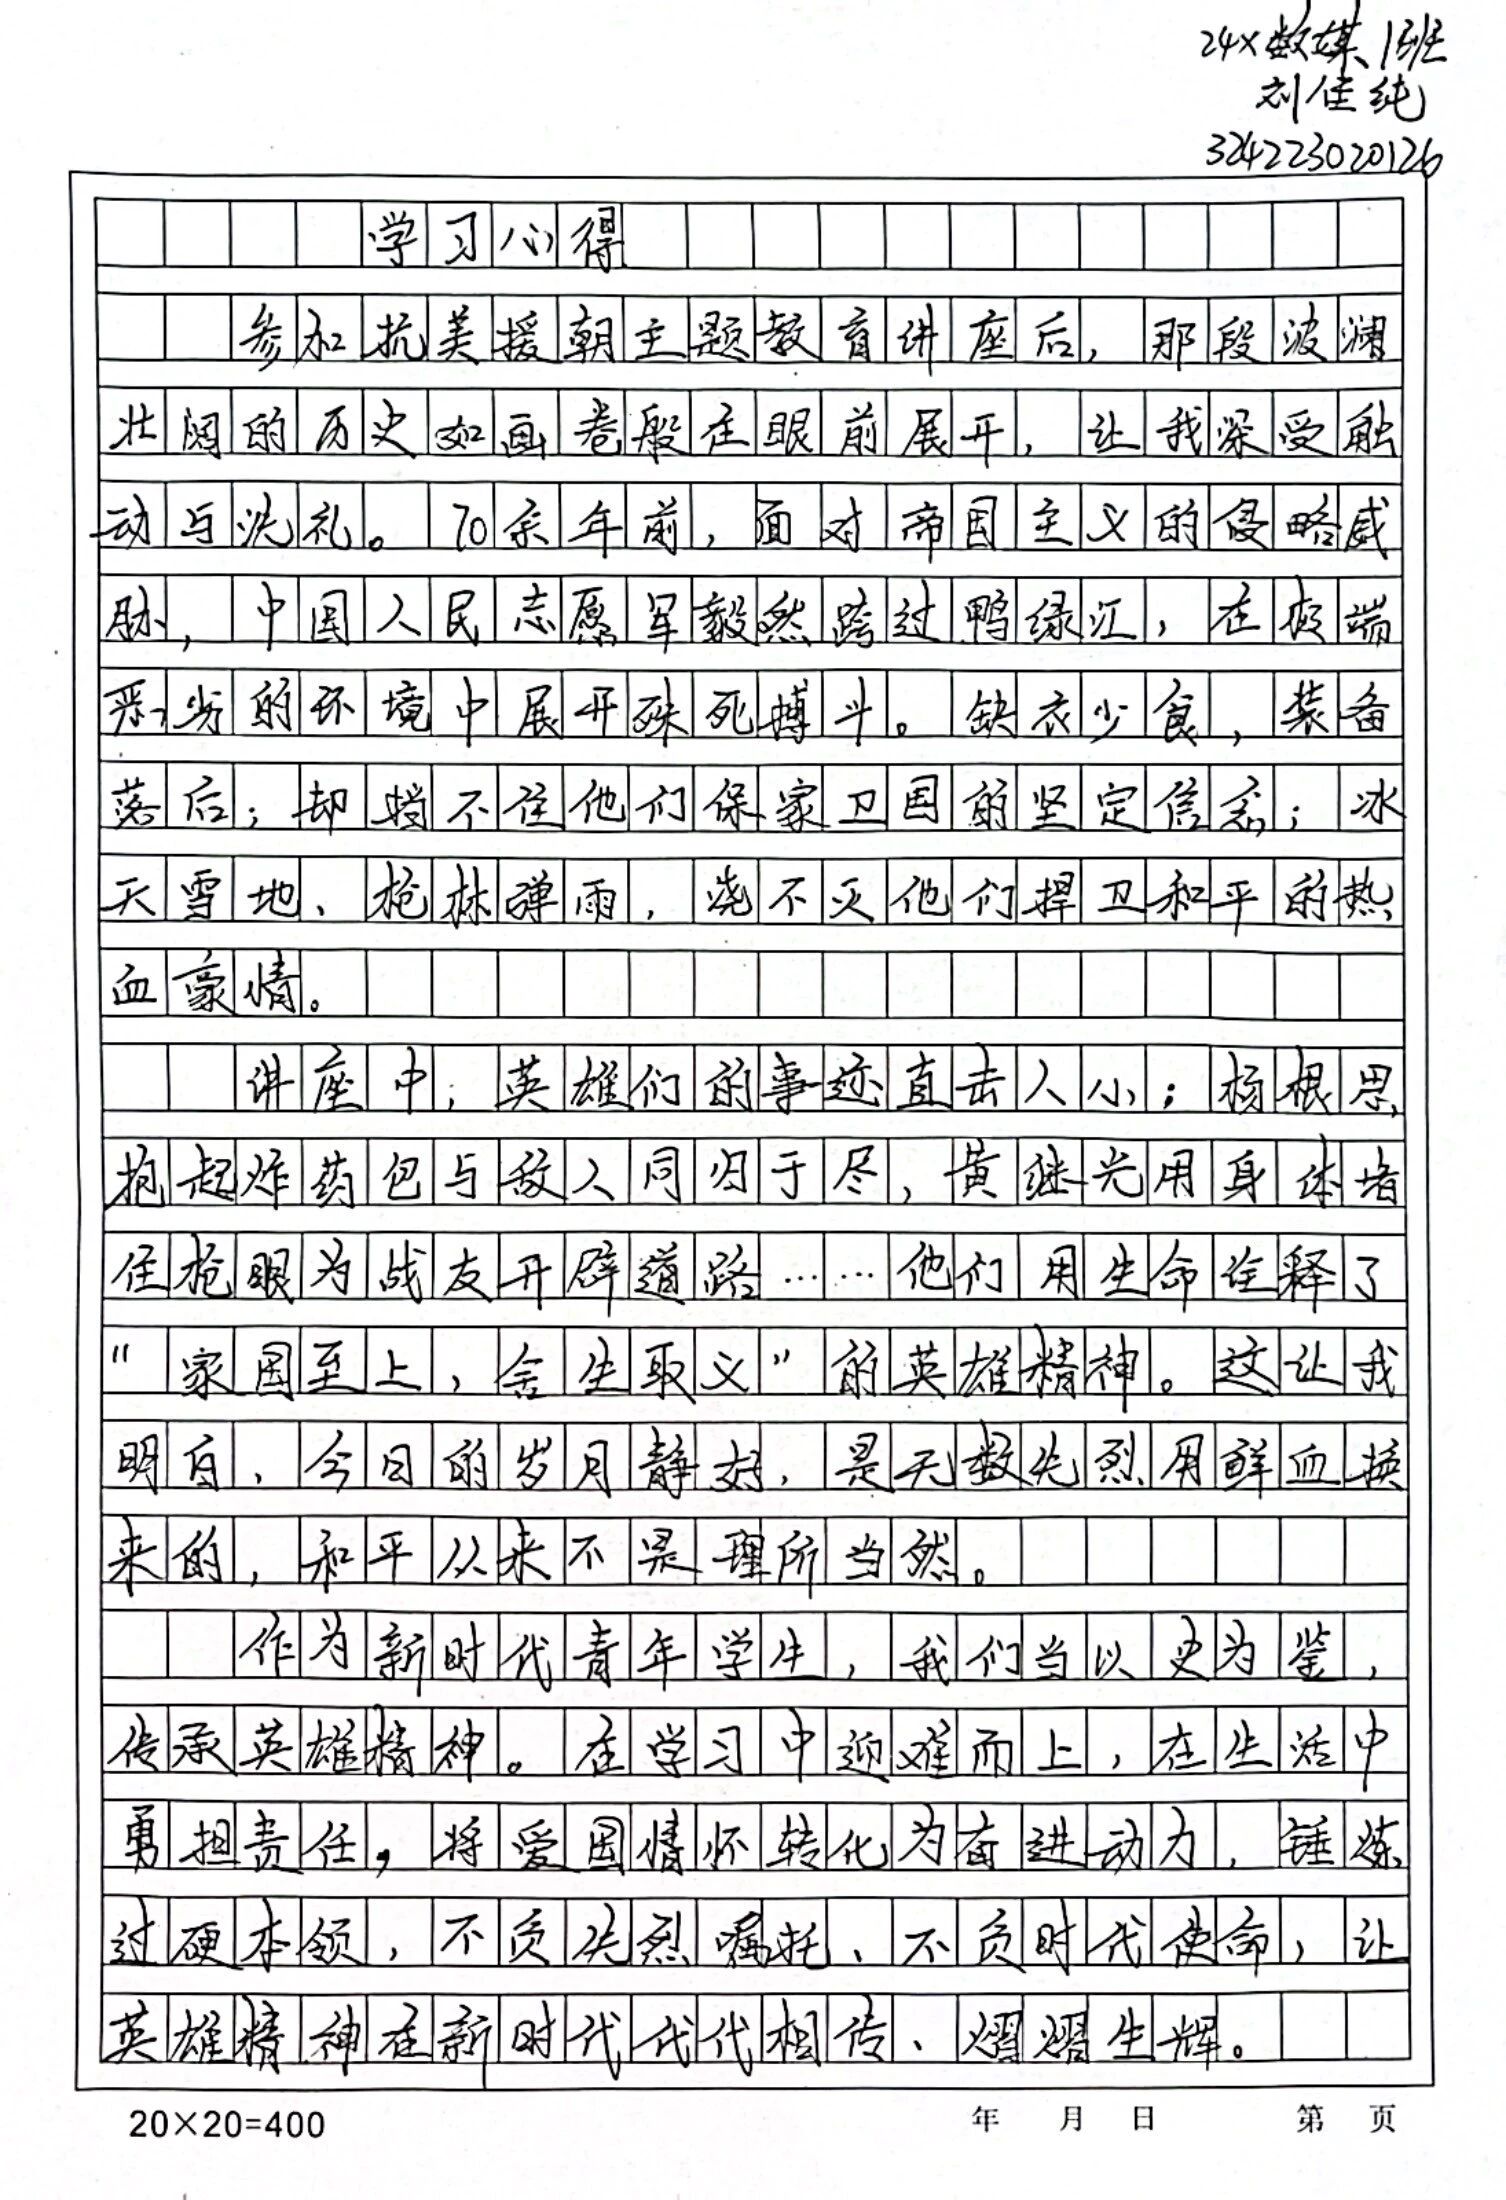 24x数媒1班
刘佳纯
324223020126
学习心得
参加抗美援朝主题教育讲座后，那段波澜
壮阔的历史如画卷般在眼前展开，让我深受触
动与洗礼。70余年前，面对帝国主义的侵略威
胁，中国人民志愿军毅然跨过鸭绿江，在极端
恶劣的环境中展开殊死搏斗。缺衣少食，装备
落后；却挡不住他们保家卫国的坚定信念；冰
天雪地、枪林弹雨，浇不灭他们捍卫和平的热
血豪情。
讲座中，英雄们的事迹直击人心；杨根思
抱起炸药包与敌人同归于尽，黄继光用身体堵
住枪眼为战友开辟道路……他们用生命诠释了
"家国至上，舍生取义"的英雄精神。这让我
明白，今日的岁月静好，是无数先烈用鲜血换
来的，和平从来不是理所当然。
作为新时代青年学生，我们当以史为鉴，
传承英雄精神。在学习中迎难而上，在生活中
勇担责任，将爱国情怀转化为奋进动力，锤炼
过硬本领，不负先烈嘱托、不负时代使命，让
英雄精神在新时代代代相传、熠熠生辉。
20×20=400 年 月 日 第 页